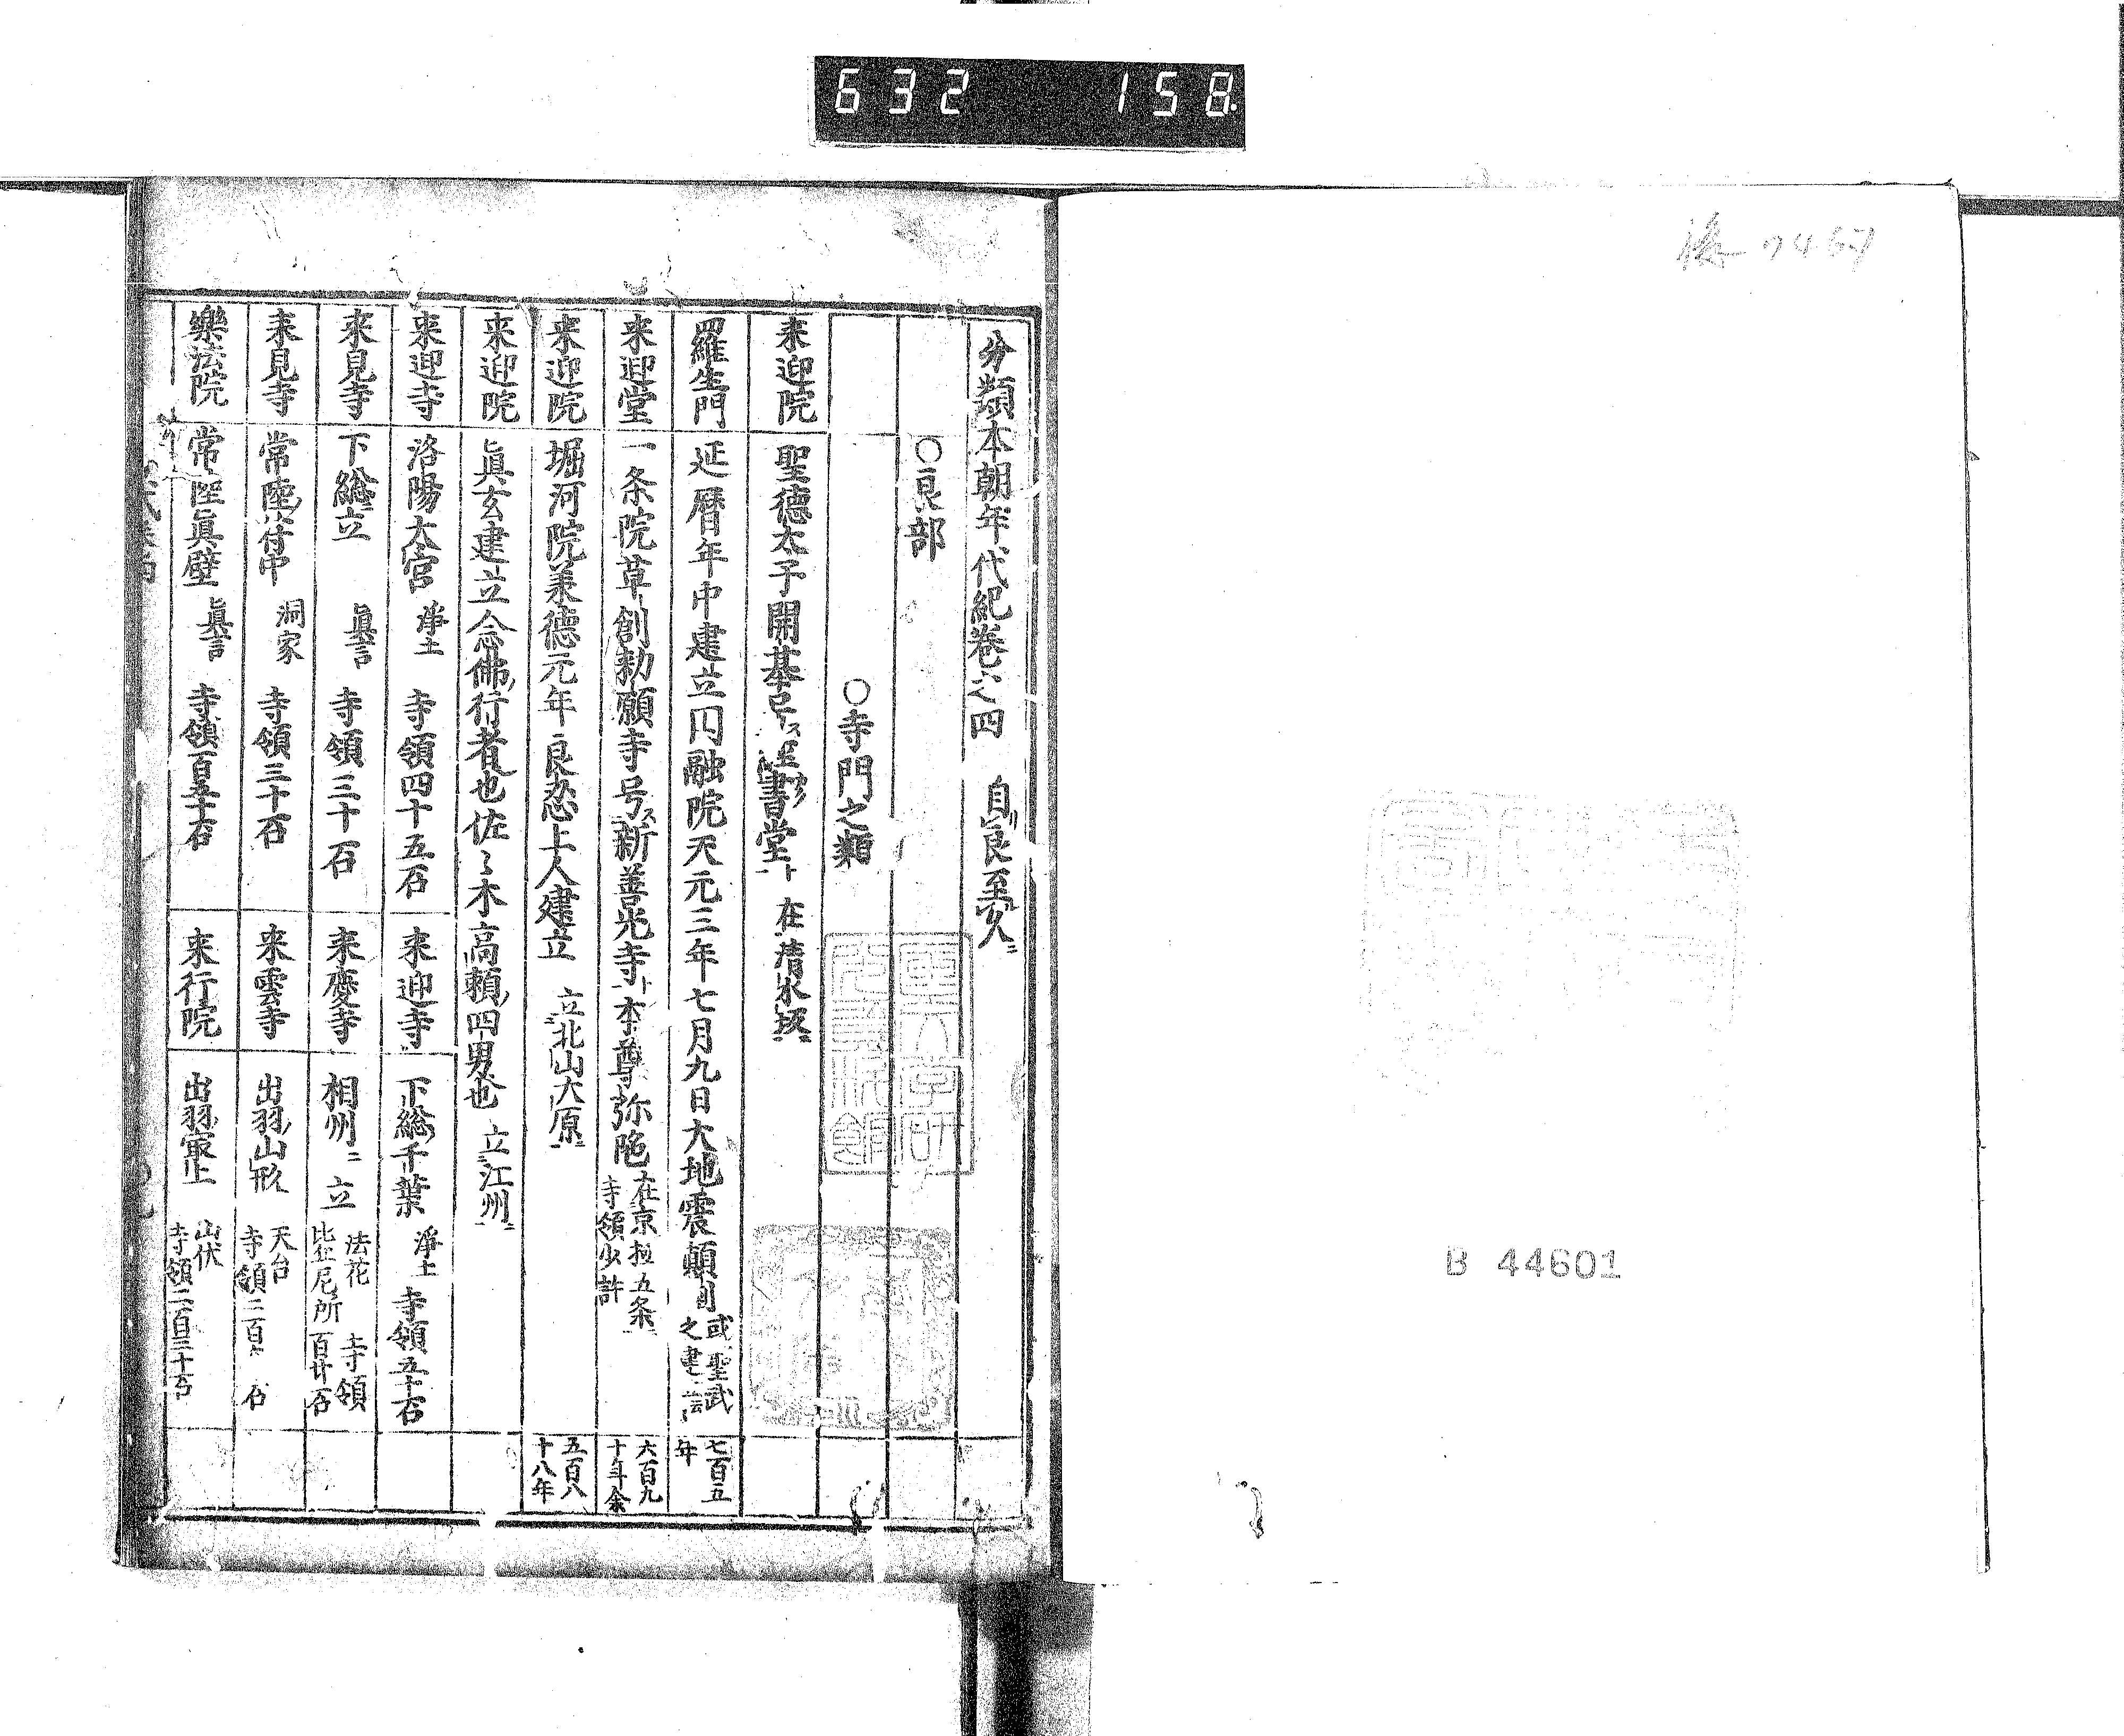 632 158.
B 44601
分類本朝年代紀卷之四 自良至安ニ
○良部
○寺門之類
来迎院 聖德太子開基 書堂ト 在清水坂ニ
羅生門 延暦年中建立円融院天元三年七月九日大地震顛 或聖武之建 七百五年
来迎堂 一条院草創勅願寺号ス新善光寺ト本尊弥陁 在京極五条 寺領少許 六百九十年余
来迎院 堀河院兼德元年良忍上人建立 立北山大原ニ 五百八十八年
来迎院 眞玄建立念佛行者也佐々木高頼四男也 立江州ニ
来迎寺 洛陽大宮 淨土 寺領四十五石 来迎寺 下総千葉 淨土 寺領五十石
来見寺 下総立 眞言 寺領三十石 来慶寺 相州ニ立 法花 比丘尼所 寺領百廿石
来見寺 常陸苻中 洞家 寺領三十石 来雲寺 出羽山形 天台 寺領二百 石
樂法院 常陸眞壁 眞言 寺領百五十石 来行院 出羽最上 山伏 寺領二百三十石